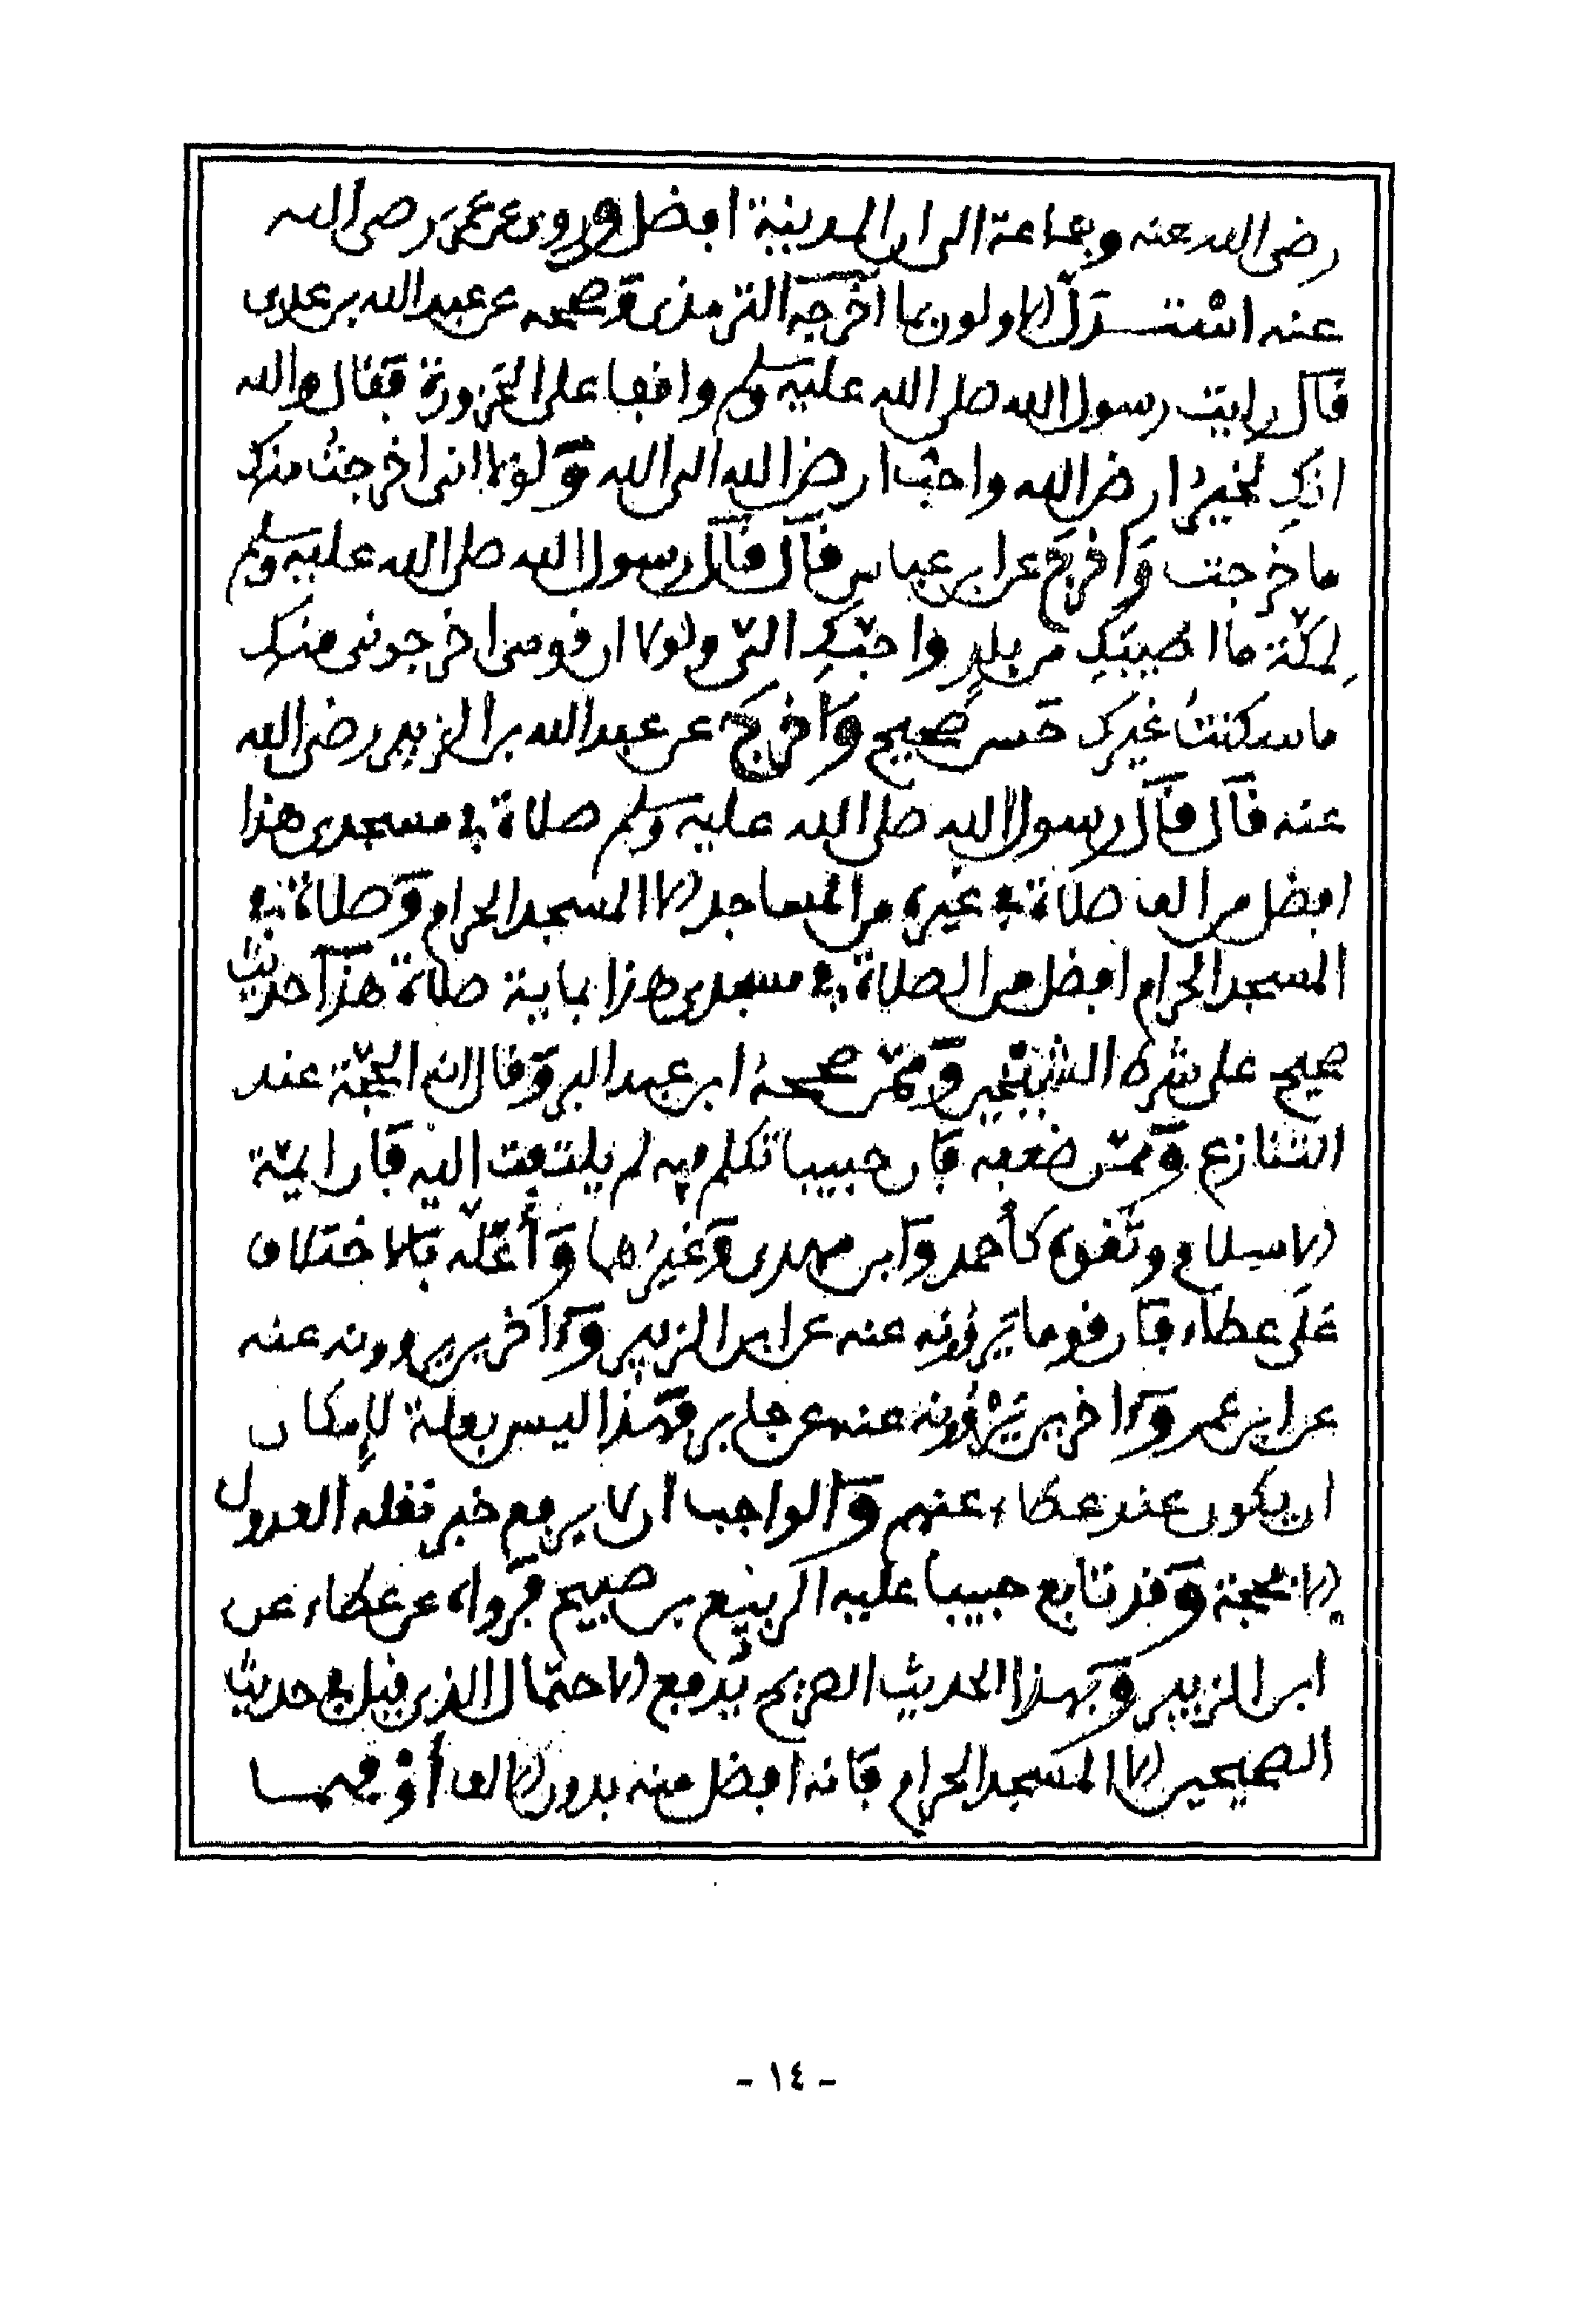 رضى الله عنه وجماعة الى ان المدينة افضل وروى عن عمر رضى الله
عنه اسْتدل الاولون بما اخرجه الترمذى وصححه عن عبد الله بن عدى
قال رايت رسول الله صلى الله عليه وسلم واقفا على الحزورة فقال والله
انكِ لخيرُ ارض الله واحبّ ارض الله الى الله ولولا انى اخرجتُ منك
ما خرجت واخرج عن ابن عباس قال قال رسول الله صلى الله عليه وسلم
لمكّة ما اطيبَكِ من بلدٍ واحبّكِ الىّ ولولا ان قومى اخرجونى منك
ما سكنتُ غيرك حسن صحيح واخرج عن عبد الله بن الزبير رضى الله
عنه قال قال رسول الله صلى الله عليه وسلم صلاة في مسجدى هذا
افضل من الف صلاة في غيره من المساجد الا المسجد الحرام وصلاة في
المسجد الحرام افضل من الصلاة في مسجدى هذا بماية صلاة هذا حديث
صحيح على شرط الشيخين وممّن صححهُ ابن عبد البر وقال انه الحجّة عند
التنازع وممّن ضعفه فان حبيبا تكلم فيه لم يلتفت اليه فان ايمّة
الاسلام وثقوه كأحمد وابن مهدى وغيرُهما وأعلّه بالاختلاف
على عطاء فان قوما يَرْوُونه عنه عن ابن الزبير واخرين يروونه عنه
عن ابن عمر واخرين يَرْوُونه عنه عن جابر فهذا ليس بعلة لإمكان
ان يكون عند عطاء عنهم والواجب ان لا يرفع خبر نقله العدول
الا بحجة وقد تابع حبيبا عليه الربيع بن صبيح فرواه عن عطاء عن
ابن الزبير وبهذا الحديث الصريح يُدفع الاحتمال الذى قيل في حديث
الصحيحين الا المسجد الحرام فانه افضل منه بدون الالف أوْ فهمـا